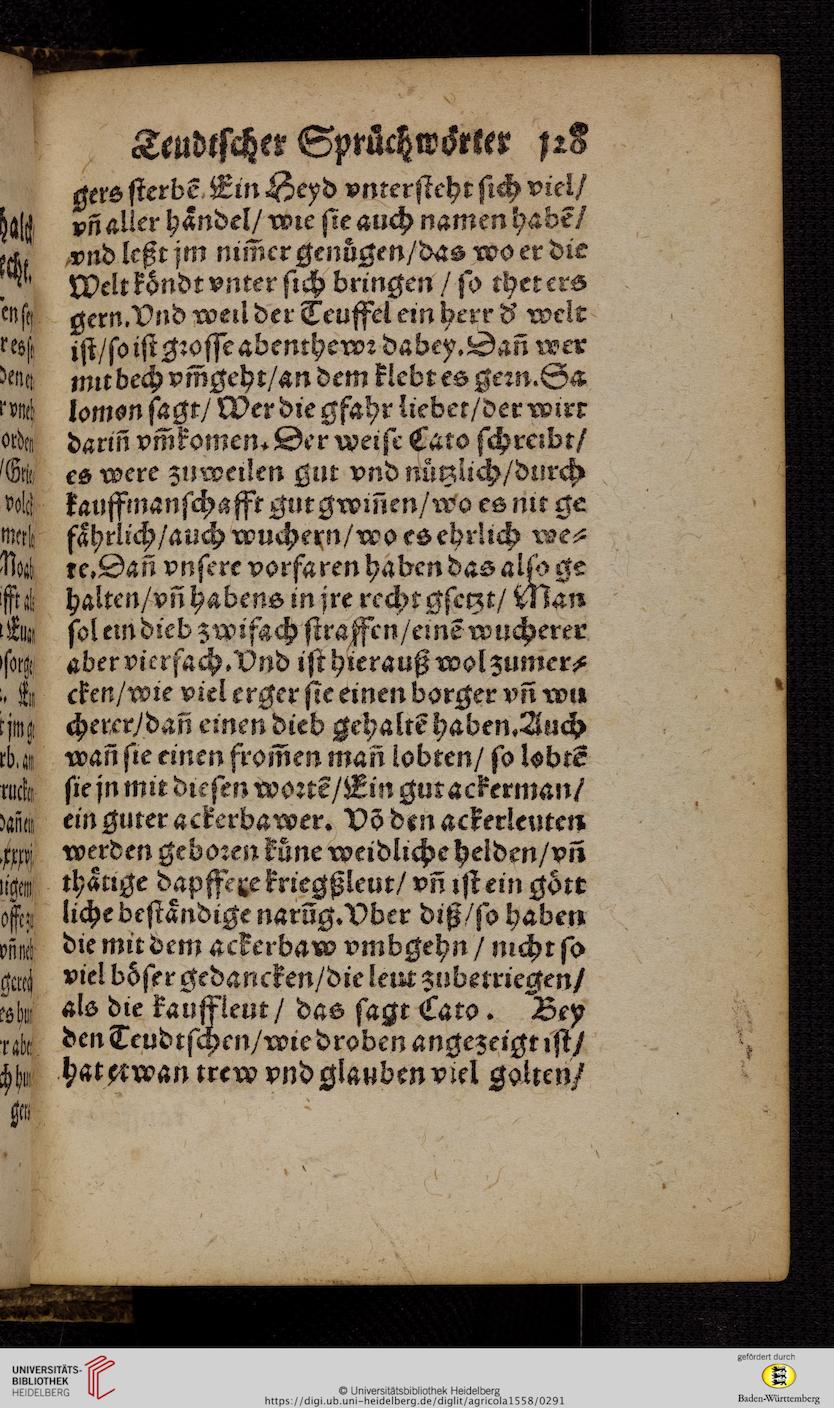 Teudtscher Sprüchwörter 128
gers sterbẽ. Ein Heyd vntersteht sich viel/
vñ aller håndel/ wie sie auch namen habẽ/
vnd leßt jm nim̃er genůgen/das wo er die
Welt kõndt vnter sich bringen / so thet ers
gern. Vnd weil der Teuffel ein herr d' welt
ist/so ist grosse abenthewr dabey. Dañ wer
mit bech vm̃geht/an dem klebt es gern. Sa
lomon sagt/ Wer die gfahr liebet/der wirt
dariñ vm̃komen. Der weise Cato schreibt/
es were zuweilen gut vnd nůtzlich/durch
kauffmanschafft gut gwiñen/wo es nit ge
fåhrlich/auch wuchern/wo es ehrlich we⸗
re. Dañ vnsere vorfaren haben das also ge
halten/vñ habens in jre recht gsetzt/ Man
sol ein dieb zwifach straffen/einẽ wucherer
aber vierfach. Vnd ist hierauß wol zumer⸗
cken/wie viel erger sie einen borger vñ wu
cherer/dañ einen dieb gehaltẽ haben. Auch
wañ sie einen from̃en mañ lobten/ so lobtẽ
sie jn mit diesen wortẽ/Ein gut ackerman/
ein guter ackerbawer. Võ den ackerleuten
werden geboren kůne weidliche helden/vñ
thåtige dapffere kriegßleut/ vñ ist ein gött
liche beståndige narũg. Vber diß/so haben
die mit dem ackerbaw vmbgehn / nicht so
viel böser gedancken/die leut zubetriegen/
als die kauffleut / das sagt Cato. Bey
den Teudtschen/wie droben angezeigt ist/
hat etwan trew vnd glauben viel golten/
UNIVERSITÄTS-
BIBLIOTHEK
HEIDELBERG
© Universitätsbibliothek Heidelberg
https://digi.ub.uni-heidelberg.de/diglit/agricola1558/0291
gefördert durch
Baden-Württemberg